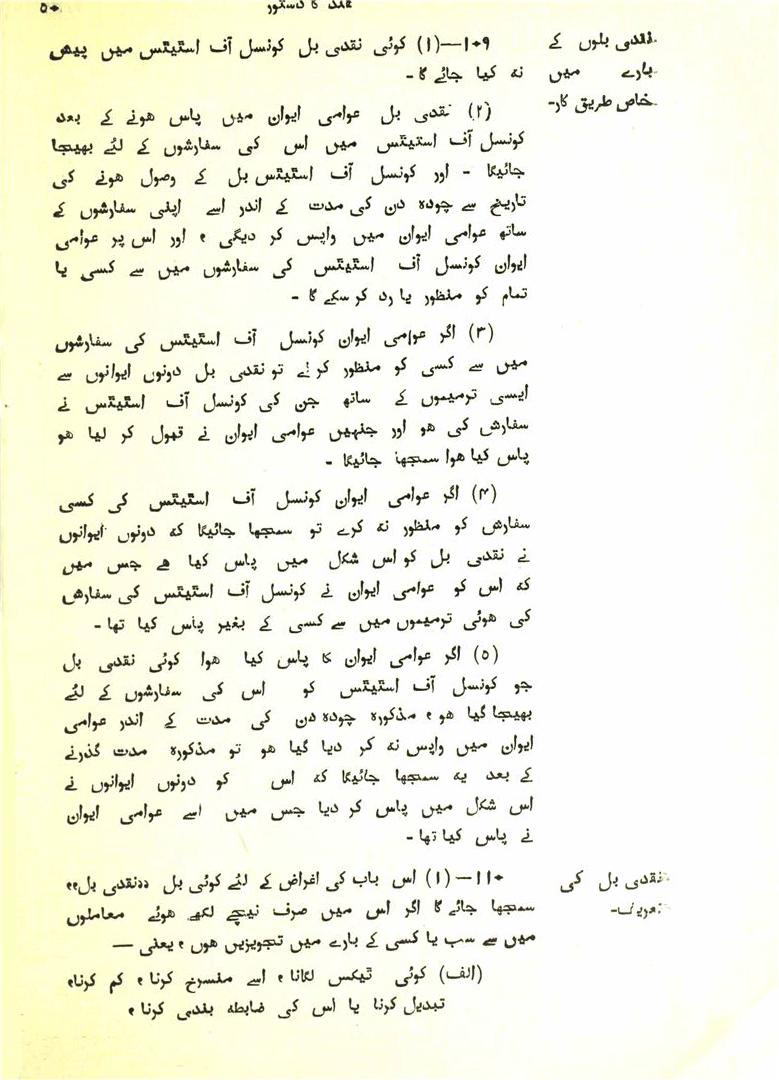 ہند کا دستور
۵۰
نقدی بلوں کے
بارے میں
خاص طریق کار-
۱۰۹—(۱) کوئی نقدی بل کونسل آف اسٹیٹس میں پیش
نہ کیا جائے گا -
(۲) نقدی بل عوامی ایوان میں پاس ہونے کے بعد
کونسل آف اسٹیٹس میں اس کی سفارشوں کے لئے بھیجا
جائیگا - اور کونسل آف اسٹیٹس بل کے وصول ہونے کی
تاریخ سے چودہ دن کی مدت کے اندر اسے اپنی سفارشوں کے
ساتھ عوامی ایوان میں واپس کر دیگی ، اور اس پر عوامی
ایوان کونسل آف اسٹیٹس کی سفارشوں میں سے کسی یا
تمام کو منظور یا رد کر سکے گا -
(۳) اگر عوامی ایوان کونسل آف اسٹیٹس کی سفارشوں
میں سے کسی کو منظور کر لے تو نقدی بل دونوں ایوانوں سے
ایسی ترمیموں کے ساتھ جن کی کونسل آف اسٹیٹس نے
سفارش کی ہو اور جنہیں عوامی ایوان نے قبول کر لیا ہو
پاس کیا ہوا سمجھا جائیگا -
(۴) اگر عوامی ایوان کونسل آف اسٹیٹس کی کسی
سفارش کو منظور نہ کرے تو سمجھا جائیگا کہ دونوں ایوانوں
نے نقدی بل کو اس شکل میں پاس کیا ہے جس میں
کہ اس کو عوامی ایوان نے کونسل آف اسٹیٹس کی سفارش
کی ہوئی ترمیموں میں سے کسی کے بغیر پاس کیا تھا -
(۵) اگر عوامی ایوان کا پاس کیا ہوا کوئی نقدی بل
جو کونسل آف اسٹیٹس کو اس کی سفارشوں کے لئے
بھیجا گیا ہو ، مذکورہ چودہ دن کی مدت کے اندر عوامی
ایوان میں واپس نہ کر دیا گیا ہو تو مذکورہ مدت گذرنے
کے بعد یہ سمجھا جائیگا کہ اس کو دونوں ایوانوں نے
اس شکل میں پاس کر دیا جس میں اسے عوامی ایوان
نے پاس کیا تھا -
نقدی بل کی
تعریف-
۱۱۰—(۱) اس باب کی اغراض کے لئے کوئی بل ,,نقدی بل،،
سمجھا جائے گا اگر اس میں صرف نیچے لکھے ہوئے معاملوں
میں سے سب یا کسی کے بارے میں تجویزیں ہوں ، یعنی —
(الف) کوئی ٹیکس لگانا ، اسے منسوخ کرنا ، کم کرنا،
تبدیل کرنا یا اس کی ضابطہ بندی کرنا ،